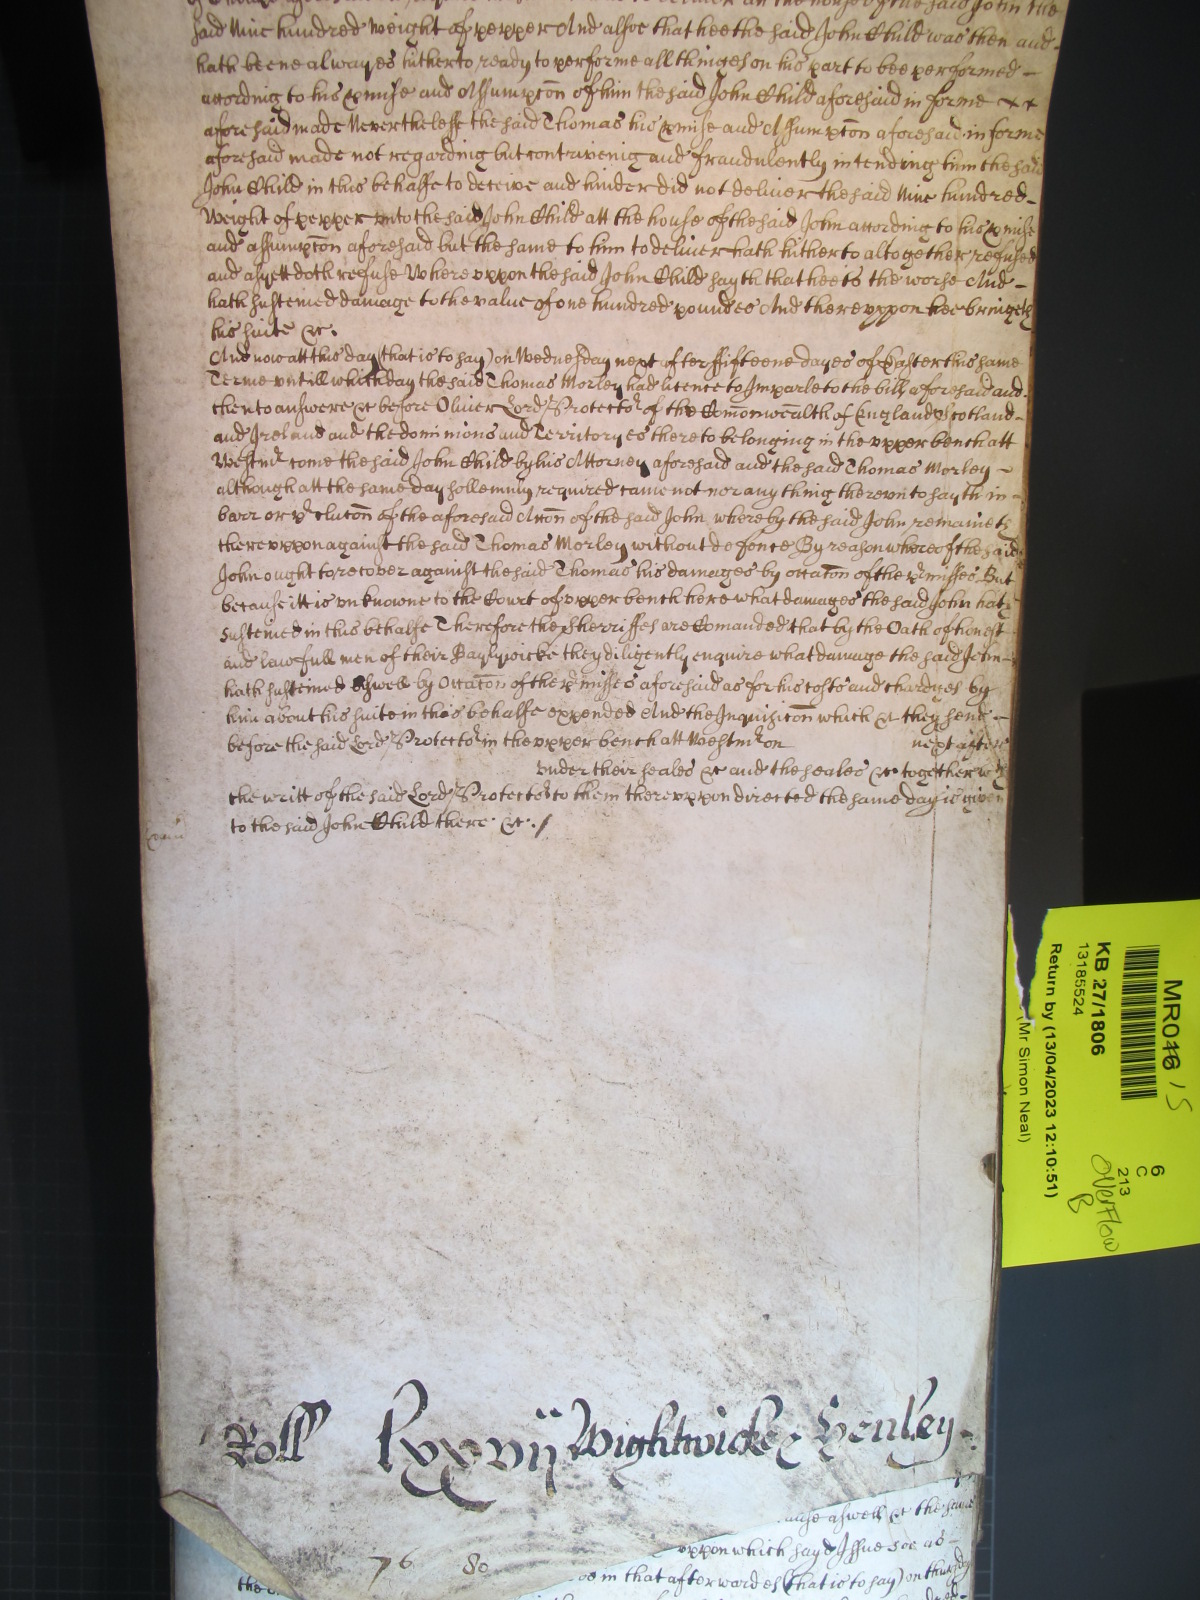 to deliver att the house of the said John the
said Nine hundred weight of pepper And alsoe that hee the said John Child was then and
hath beene alwayes hitherto ready to performe all thinges on his part to bee performed
according to his pmise and Assumpcōn of him the said John Child aforesaid in forme
aforesaid made Neverthelesse the said Thomas his pmise and Assumpcōn aforesaid in forme
aforesaid made not regarding but contriveinig and fraudulently intending him the said
John Child in this behalfe to deceive and hinder did not deliver the said Nine hundred
Weight of pepper unto the said John Child att the house of the said John according to his pmise
and assumpcōn aforesaid but the same to him to deliver hath hitherto altogether refused
and as yett doth refuse Whereuppon the said John Child sayth that hee is the worse And
hath susteined damage to the value of one hundred poundes And thereuppon hee bringeth
his suite &c.
And now att this day (that is to say) on Wednesday next after fifteene dayes of Easter this same
Terme untill which day the said Thomas Morley had licence to Imparle to the bill aforesaid and
then to answere &c before Oliver Lord Protector of the Comonwealth of England Scotland
and Ireland and the dominions and Territoryes thereto belonging in the upper bench att
Westmr come the said John Child by his Attorney aforesaid and the said Thomas Morley
although att the same day sollemnly required came not nor any thing thereunto sayth in
barr or pclucōn of the aforesaid Accōn of the said John whereby the said John remaineth
thereuppon against the said Thomas Morley without defence By reason whereof the said
John ought to recover against the said Thomas his damages by occacōn of the pmisses But
because itt is unknowne to the Court of upper bench here what damages the said John hath
susteined in this behalfe Therefore the Sherriffes are Comanded that by the Oath of honest
and lawfull men of their Baylywicke they diligently enquire what damage the said John
hath susteined aswell by Occacōn of the pmisses aforesaid as for his costs and chardges by
him about his suite in this behalfe expended And the Inquisicōn which &c they send
before the said Lord Protector in the upper bench att Westmr on next after
under their seales &c and the seales &c together wth
the writt of the said Lord Protector to them thereuppon directed the same day is given
to the said John Child there &c.
Roll lxxvij Wightwicke & Henley
76 80
aswell &c the same
uppon which sayd Issue soe as
in that afterwardes (that is to say) on thursday
MR016 15
KB 27/1806
13185524
Return by (13/04/2023 12:10:51)
(Mr Simon Neal)
6
C
213
Overflow
B